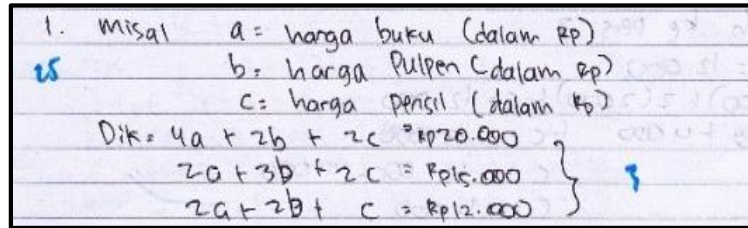 1. Misal a = harga buku (dalam Rp)
25 b = harga Pulpen (dalam Rp)
c = harga pensil (dalam Rp)
Dik = 4a + 2b + 2c = Rp20.000
2a + 3b + 2c = Rp15.000
2a + 2b + c = Rp12.000